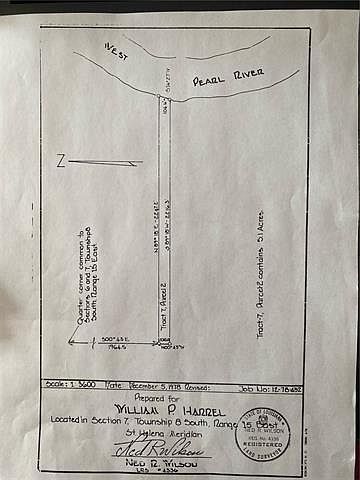 WEST
PEARL RIVER
Z
Quarter corner common to
Sections 6 and 7, Township 8
South, Range 15 East
Tract 7, Parcel 2
Tract-7, Parcel 2 contains 5.1 Acres
S00°43'E
1964.5
Scale: 1:3600 Date: December 5, 1978 Revised: Job No: 12-78-632
Prepared for
WILLIAM P. HARREL
Located in Section 7, Township 8 South, Range 15 East
St. Helena Meridian
Ned R. Wilson
NED R. WILSON
LRS #4336
STATE OF LOUISIANA
NED R. WILSON
REG. No. 4336
REGISTERED
LAND SURVEYOR